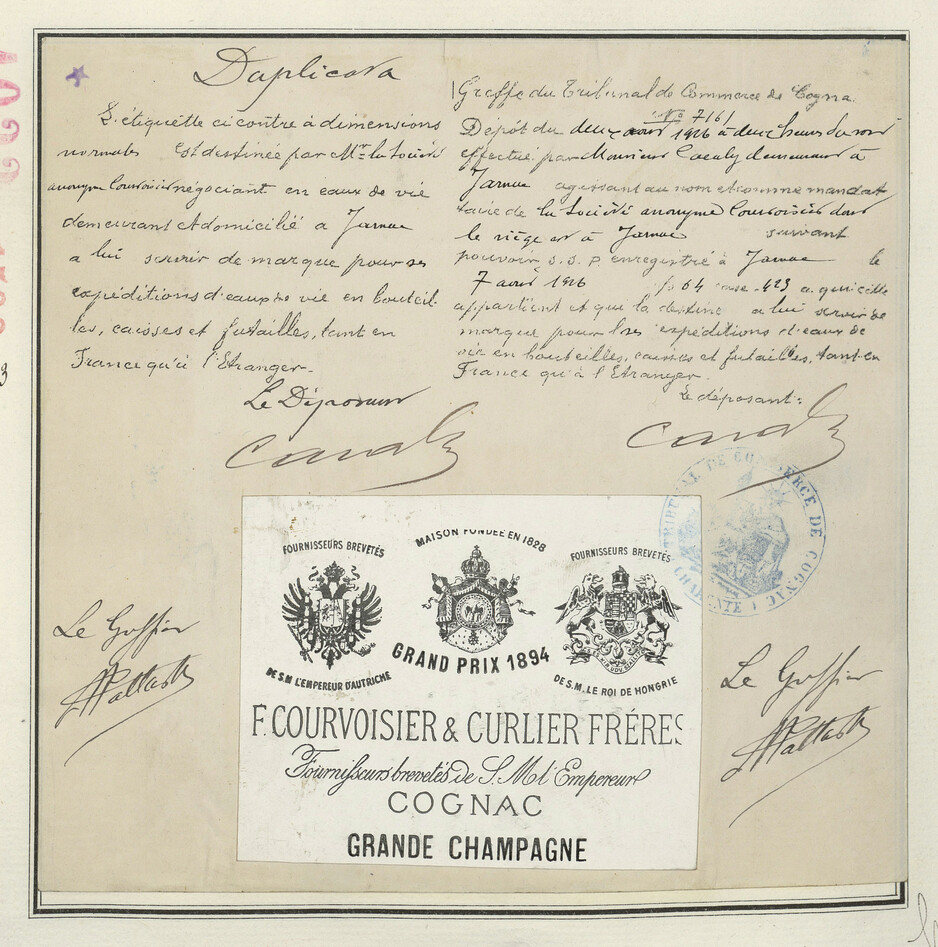 Duplicata
L'étiquette ci contre à dimensions
normales est destinée par Mr la Société
anonyme Courvoisier négociant en eaux de vie
demeurant et domicilié a Jarnac
a lui servir de marque pour ses
expéditions d'eaux de vie en bouteil-
les, caisses et futailles, tant en
France qu'à l'Etranger.
Le Déposant
Greffe du Tribunal de Commerce de Cogna.
No 7161
Dépôt du deux août 1926 à deux heures du soir
effectué par Monsieur demeurant à
Jarnac agissant au nom et comme mandat
taire de la Société anonyme Courvoisier dont
le siège est à Jarnac suivant
pouvoir s.s.p. enregistré à Jarnac le
7 août 1926 fo 64 case 423 a qui elle
appartient et qui la destine a lui servir de
marque pour les expéditions d'eaux de
vie en bouteilles, caisses et futailles, tant en
France qu'à l'Etranger.
Le déposant:
TRIBUNAL DE COMMERCE DE COGNAC
(CHARENTE)
FOURNISSEURS BREVETÉS
DE S.M L'EMPEREUR D'AUTRICHE
MAISON FONDÉE EN 1828
GRAND PRIX 1894
FOURNISSEURS BREVETÉS
DE S.M. LE ROI DE HONGRIE
F. COURVOISIER & CURLIER FRÉRES
Fournisseurs brevetés de S. M. l'Empereur
COGNAC
GRANDE CHAMPAGNE
Le Greffier
Le Greffier